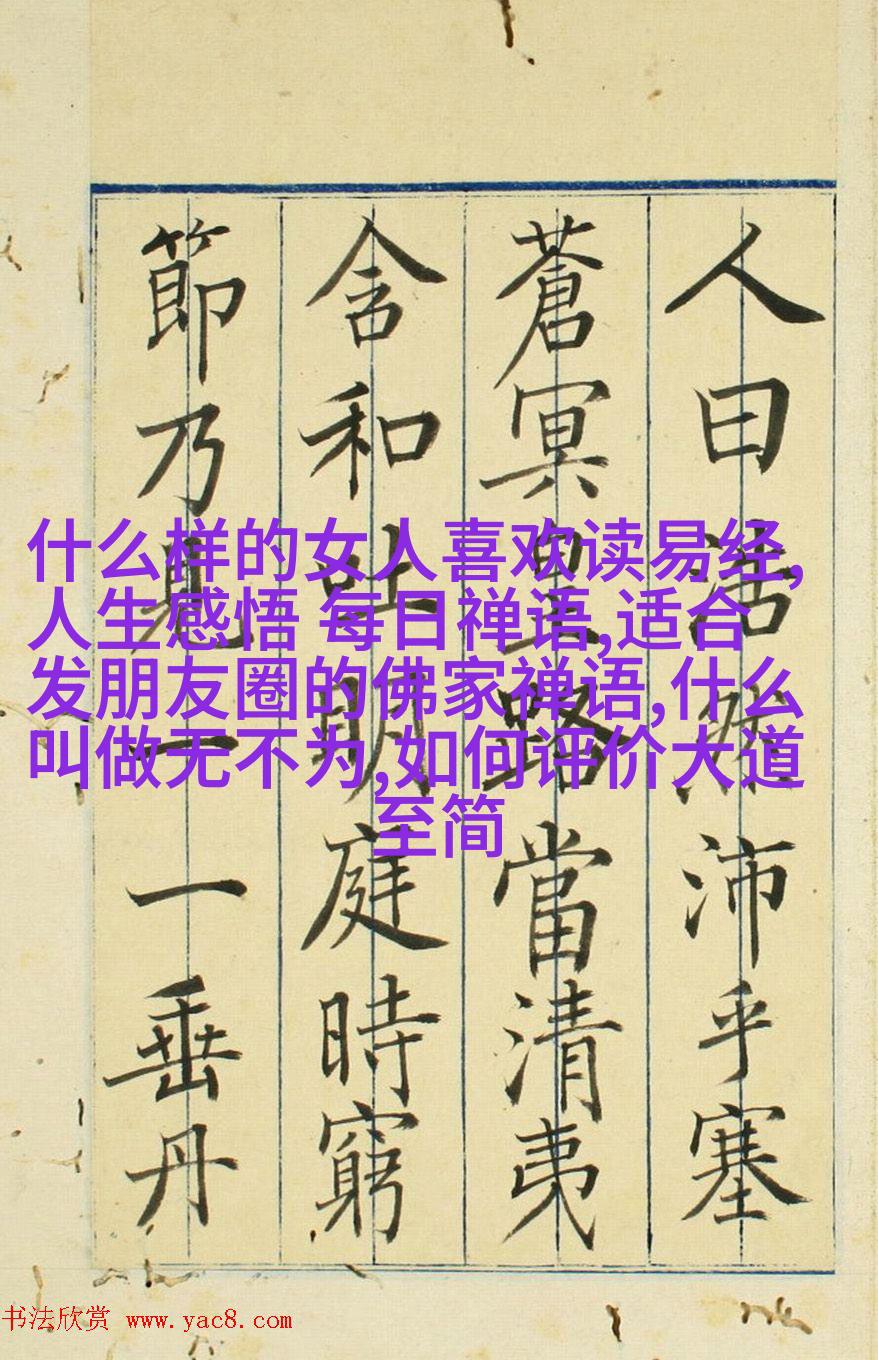 人曰浩然沛乎塞
蒼冥皇路當清夷
含和吐明庭時窮
節乃見一一垂丹
什么样的女人喜欢读易经,
人生感悟 每日禅语,适合
发朋友圈的佛家禅语,什么
叫做无不为,如何评价大道
至简
书法欣赏 www.yac8.com